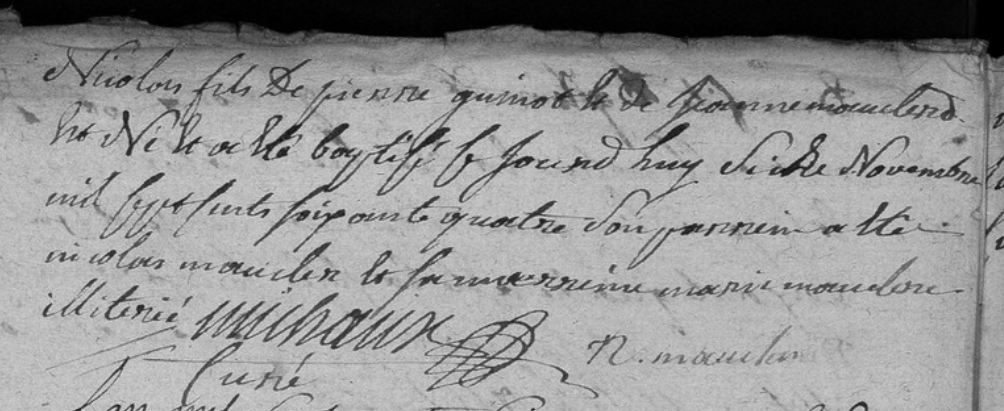 Nicolas fils De pierre guinot et de Jeanne mauclerd
Est Né Et a Eté baptisé ce Jourd huy Six De Novembre
mil sept cents soixante quatre Son parrein a Eté
nicolas maucler et sa marreine marie mauclere
illiterée michaux N. maucler
Curé